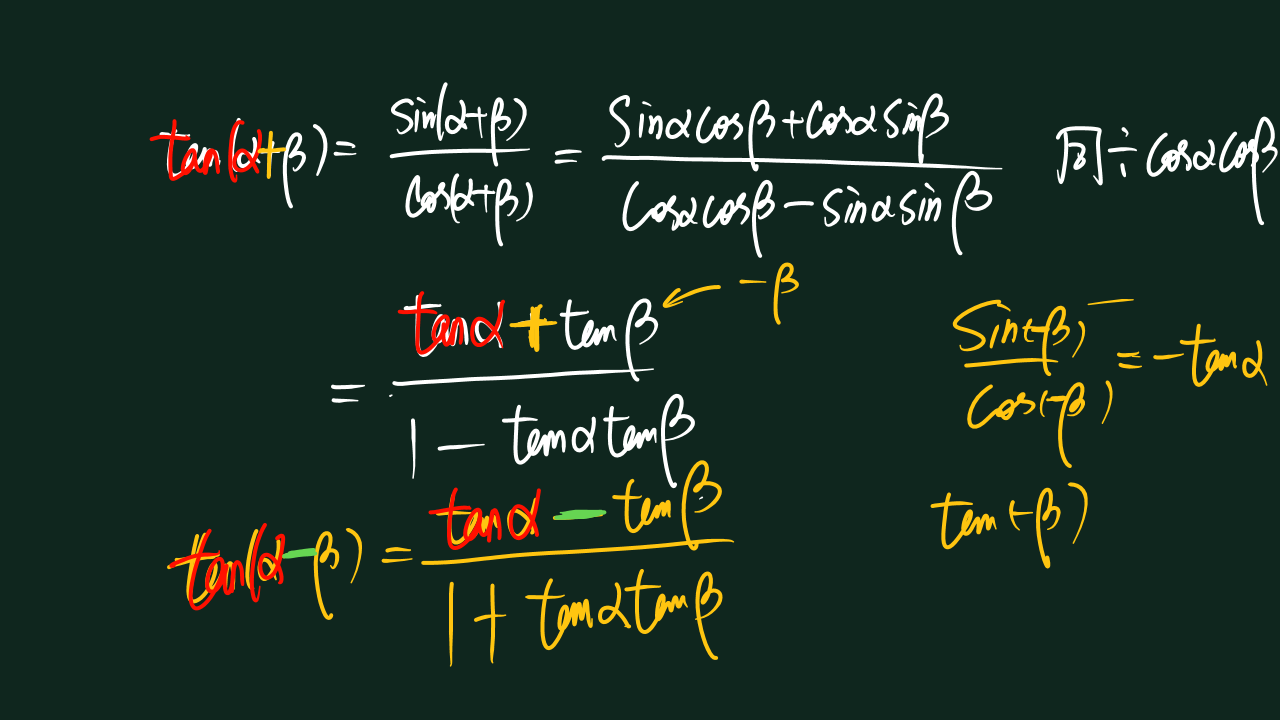 tan(α+β) = sin(α+β)/cos(α+β) = (sinαcosβ+cosαsinβ)/(cosαcosβ−sinαsinβ) 同÷cosαcosβ
= (tanα+tanβ)/(1−tanαtanβ) ← −β
sin(−β)/cos(−β) = −tanα
tan(−β)
tan(α−β) = (tanα−tanβ)/(1+tanαtanβ)